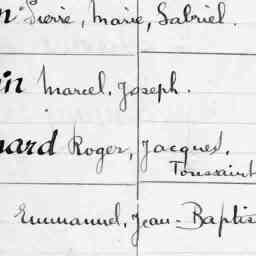 Pierre, Marie, Gabriel.
in Marcel, Joseph.
nard Roger, Jacques,
Toussaint
Emmanuel, Jean-Baptis